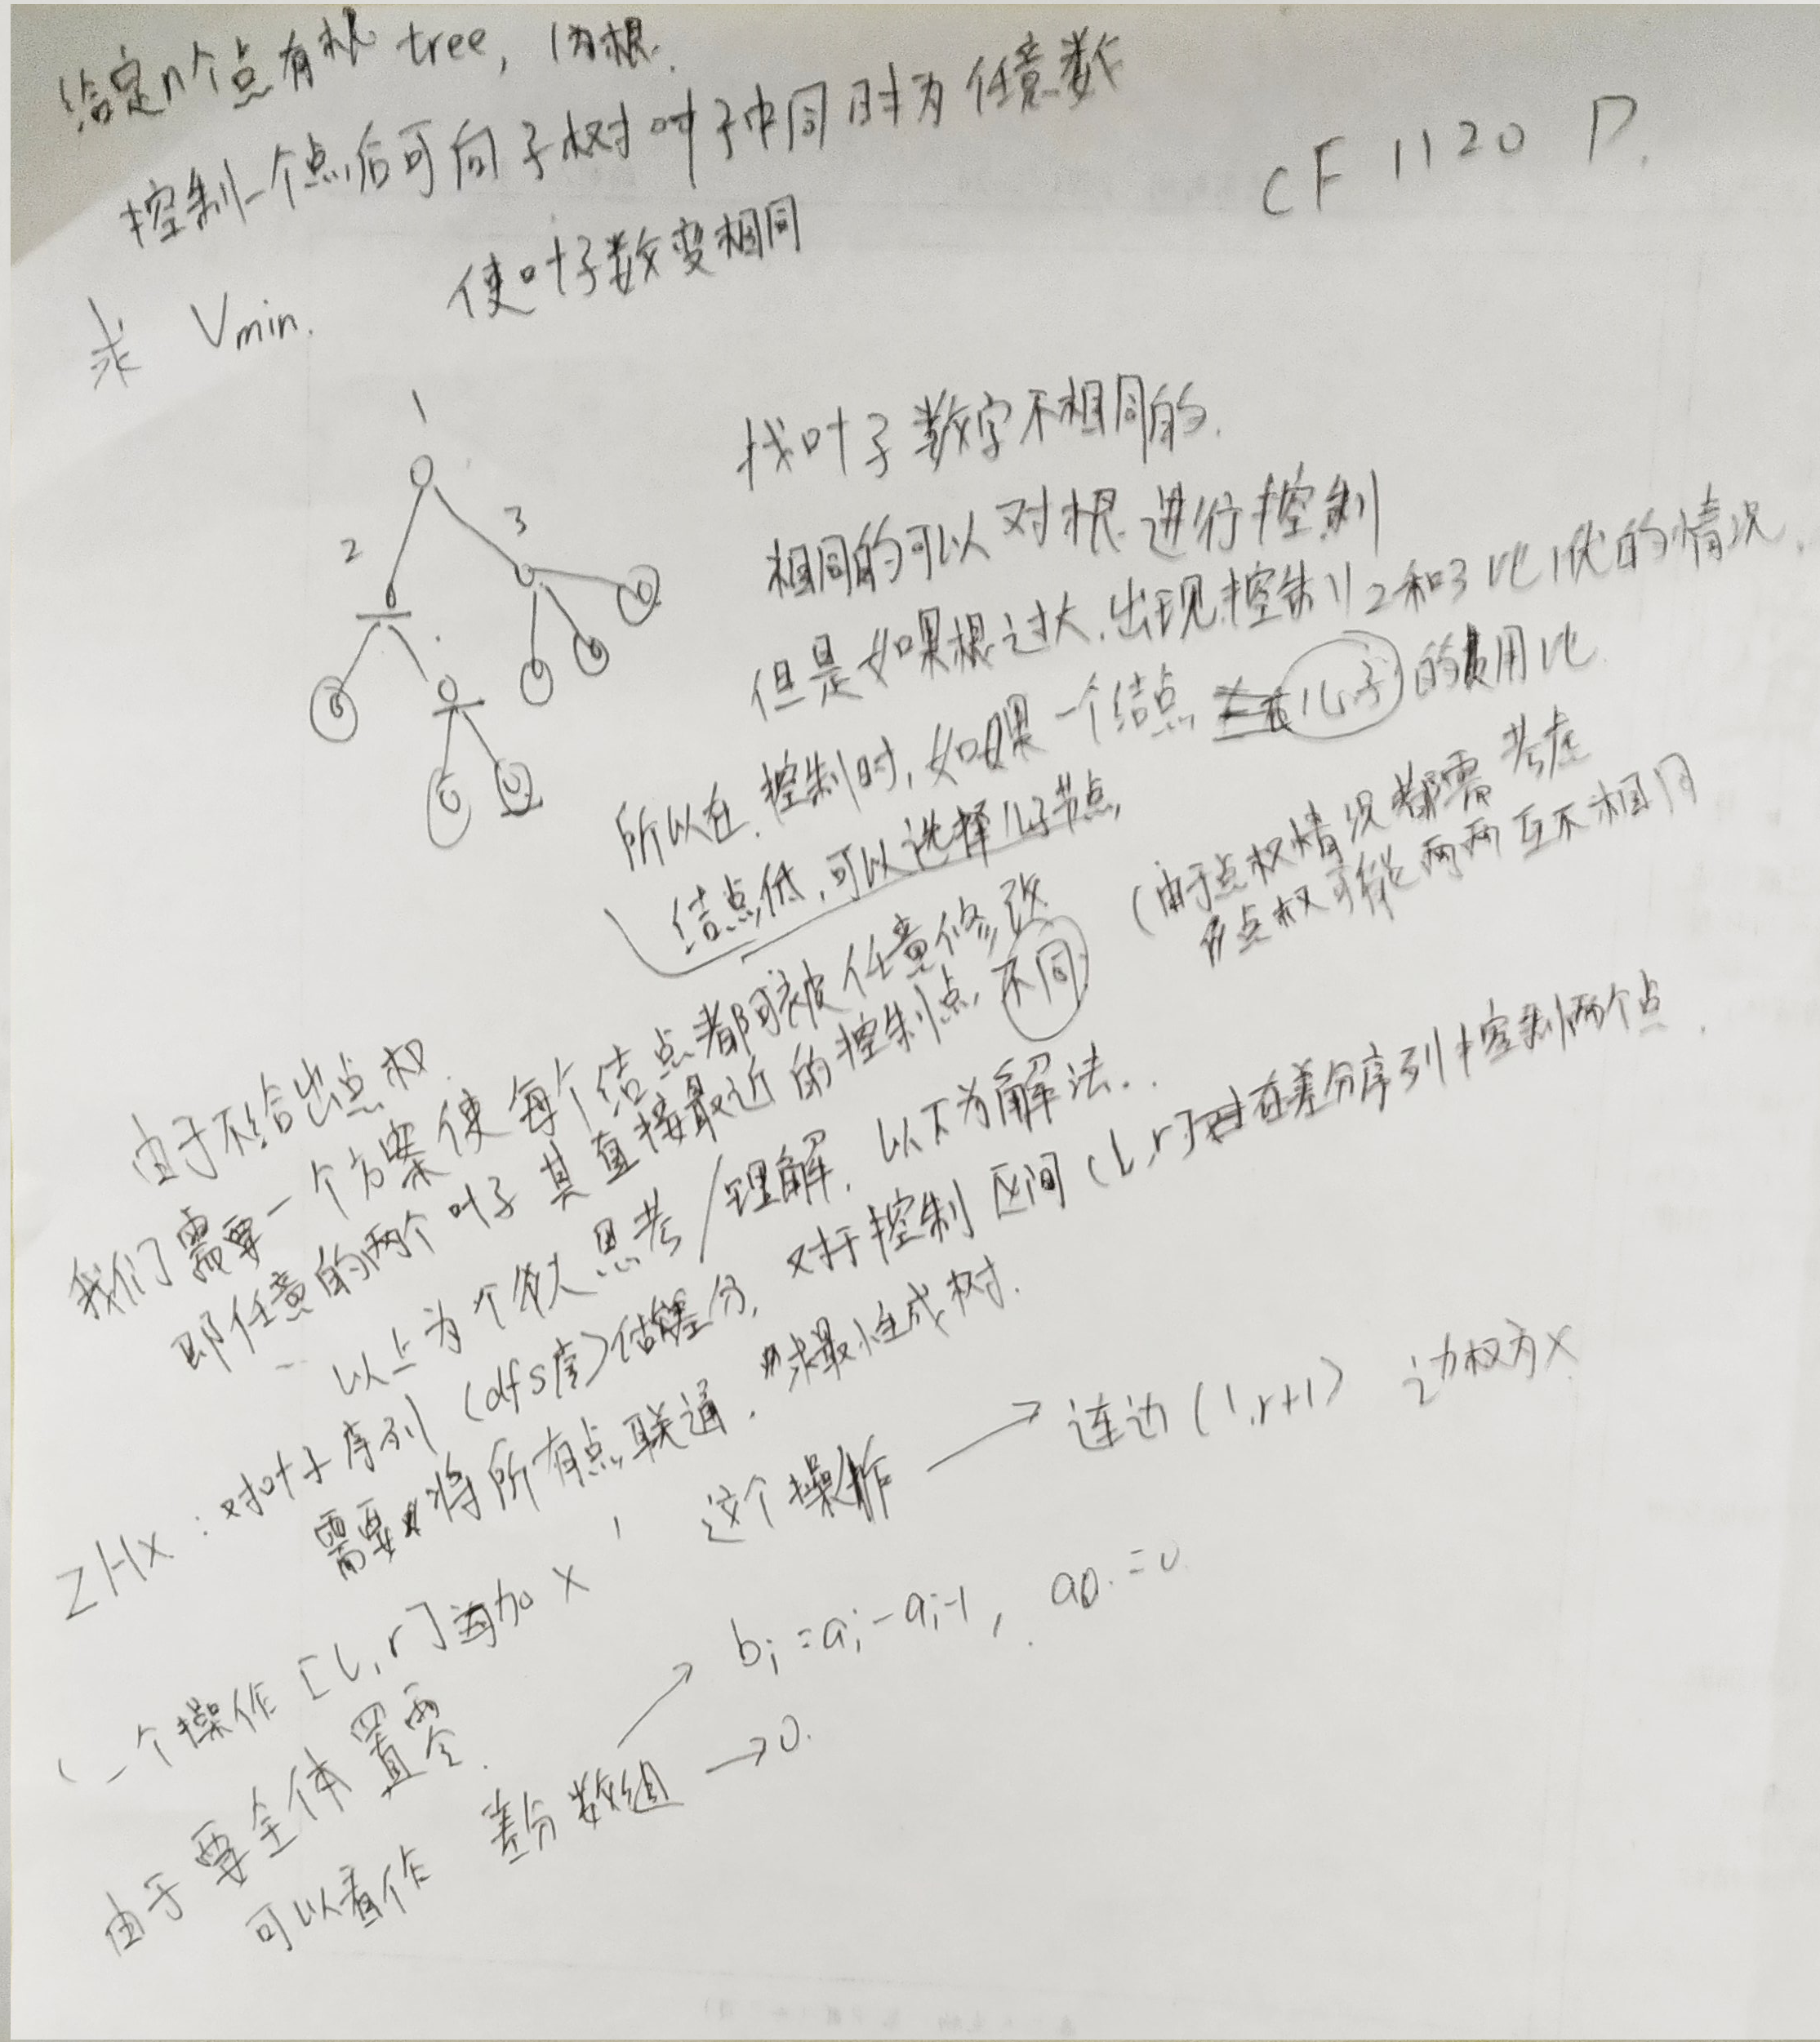 给定n个点有根 tree, 1为根.
控制一个点后可向子树叶子中同时为任意数
CF 1120 D.
求 Vmin. 使叶子数变相同
1
2
3
找叶子数字不相同的.
相同的可以对根进行控制
但是如果根过大,出现控制2和3比1优的情况.
所以在控制时,如果一个结点 儿子的费用比
结点低,可以选择儿子节点,
(由于点权情况都需考虑
点权可能两两互不相同
由于不给出点权.
我们需要一个方案使每个结点都可被任意修改
即任意的两个叶子其直接最近的控制点不同
以上为个人思考/理解. 以下为解法..
ZHx: 对叶子序列(dfs序)做差分, 对于控制区间(l,r]在差分序列控制两个点.
需要将所有点联通. 求最小生成树.
(一个操作[l,r]加x, 这个操作 → 连边(l,r+1) 边权为x
由于要全体置零.
可以看作 差分数组 → 0.
bi=ai-ai-1, a0=0.